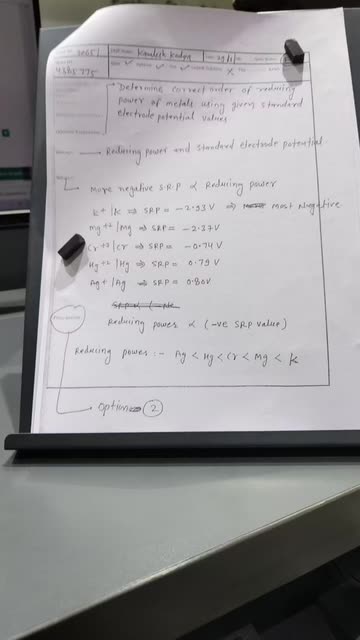 30651 Kamlesh Kadya
4385775
Determine correct order of reducing
power of metals using given standard
electrode potential values
Reducing power and standard electrode potential
more negative S.R.P ∝ Reducing power
K+ | K ⇒ SRP = -2.93 V ⇒ most Negative
Mg+2 | Mg ⇒ SRP = -2.37V
Cr+3 | Cr ⇒ SRP = -0.74 V
Hg+2 | Hg ⇒ SRP = 0.79 V
Ag+ | Ag ⇒ SRP = 0.80V
Reducing power ∝ (-ve SRP value)
Reducing power :- Ag < Hg < Cr < Mg < K
Option 2